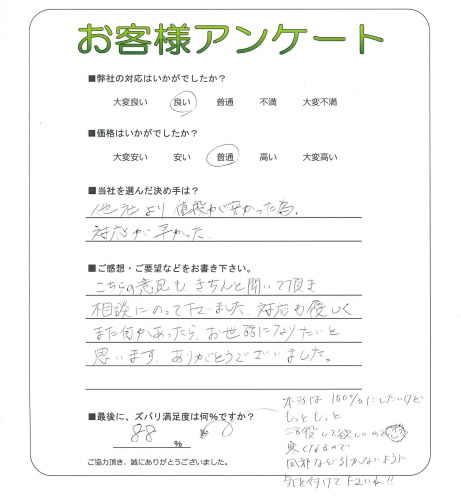 お客様アンケート
■弊社の対応はいかがでしたか？
大変良い 良い 普通 不満 大変不満
■価格はいかがでしたか？
大変安い 安い 普通 高い 大変高い
■当社を選んだ決め手は？
他社より値段が安かった為.
対応が早かった.
■ご感想・ご要望などをお書き下さい。
こちらの意見も きちんと聞いて頂き
相談にのって下さいました. 対応も優しく
また何かあったら、お世話になりたいと
思います. ありがとうございました。
■最後に、ズバリ満足度は何%ですか？
88 %
本当は100%にしたいけど
もっともっと
活役して欲しいので
寒くなるので
風邪など引かないように
気を付けて下さいね!!
ご協力頂き、誠にありがとうございました。